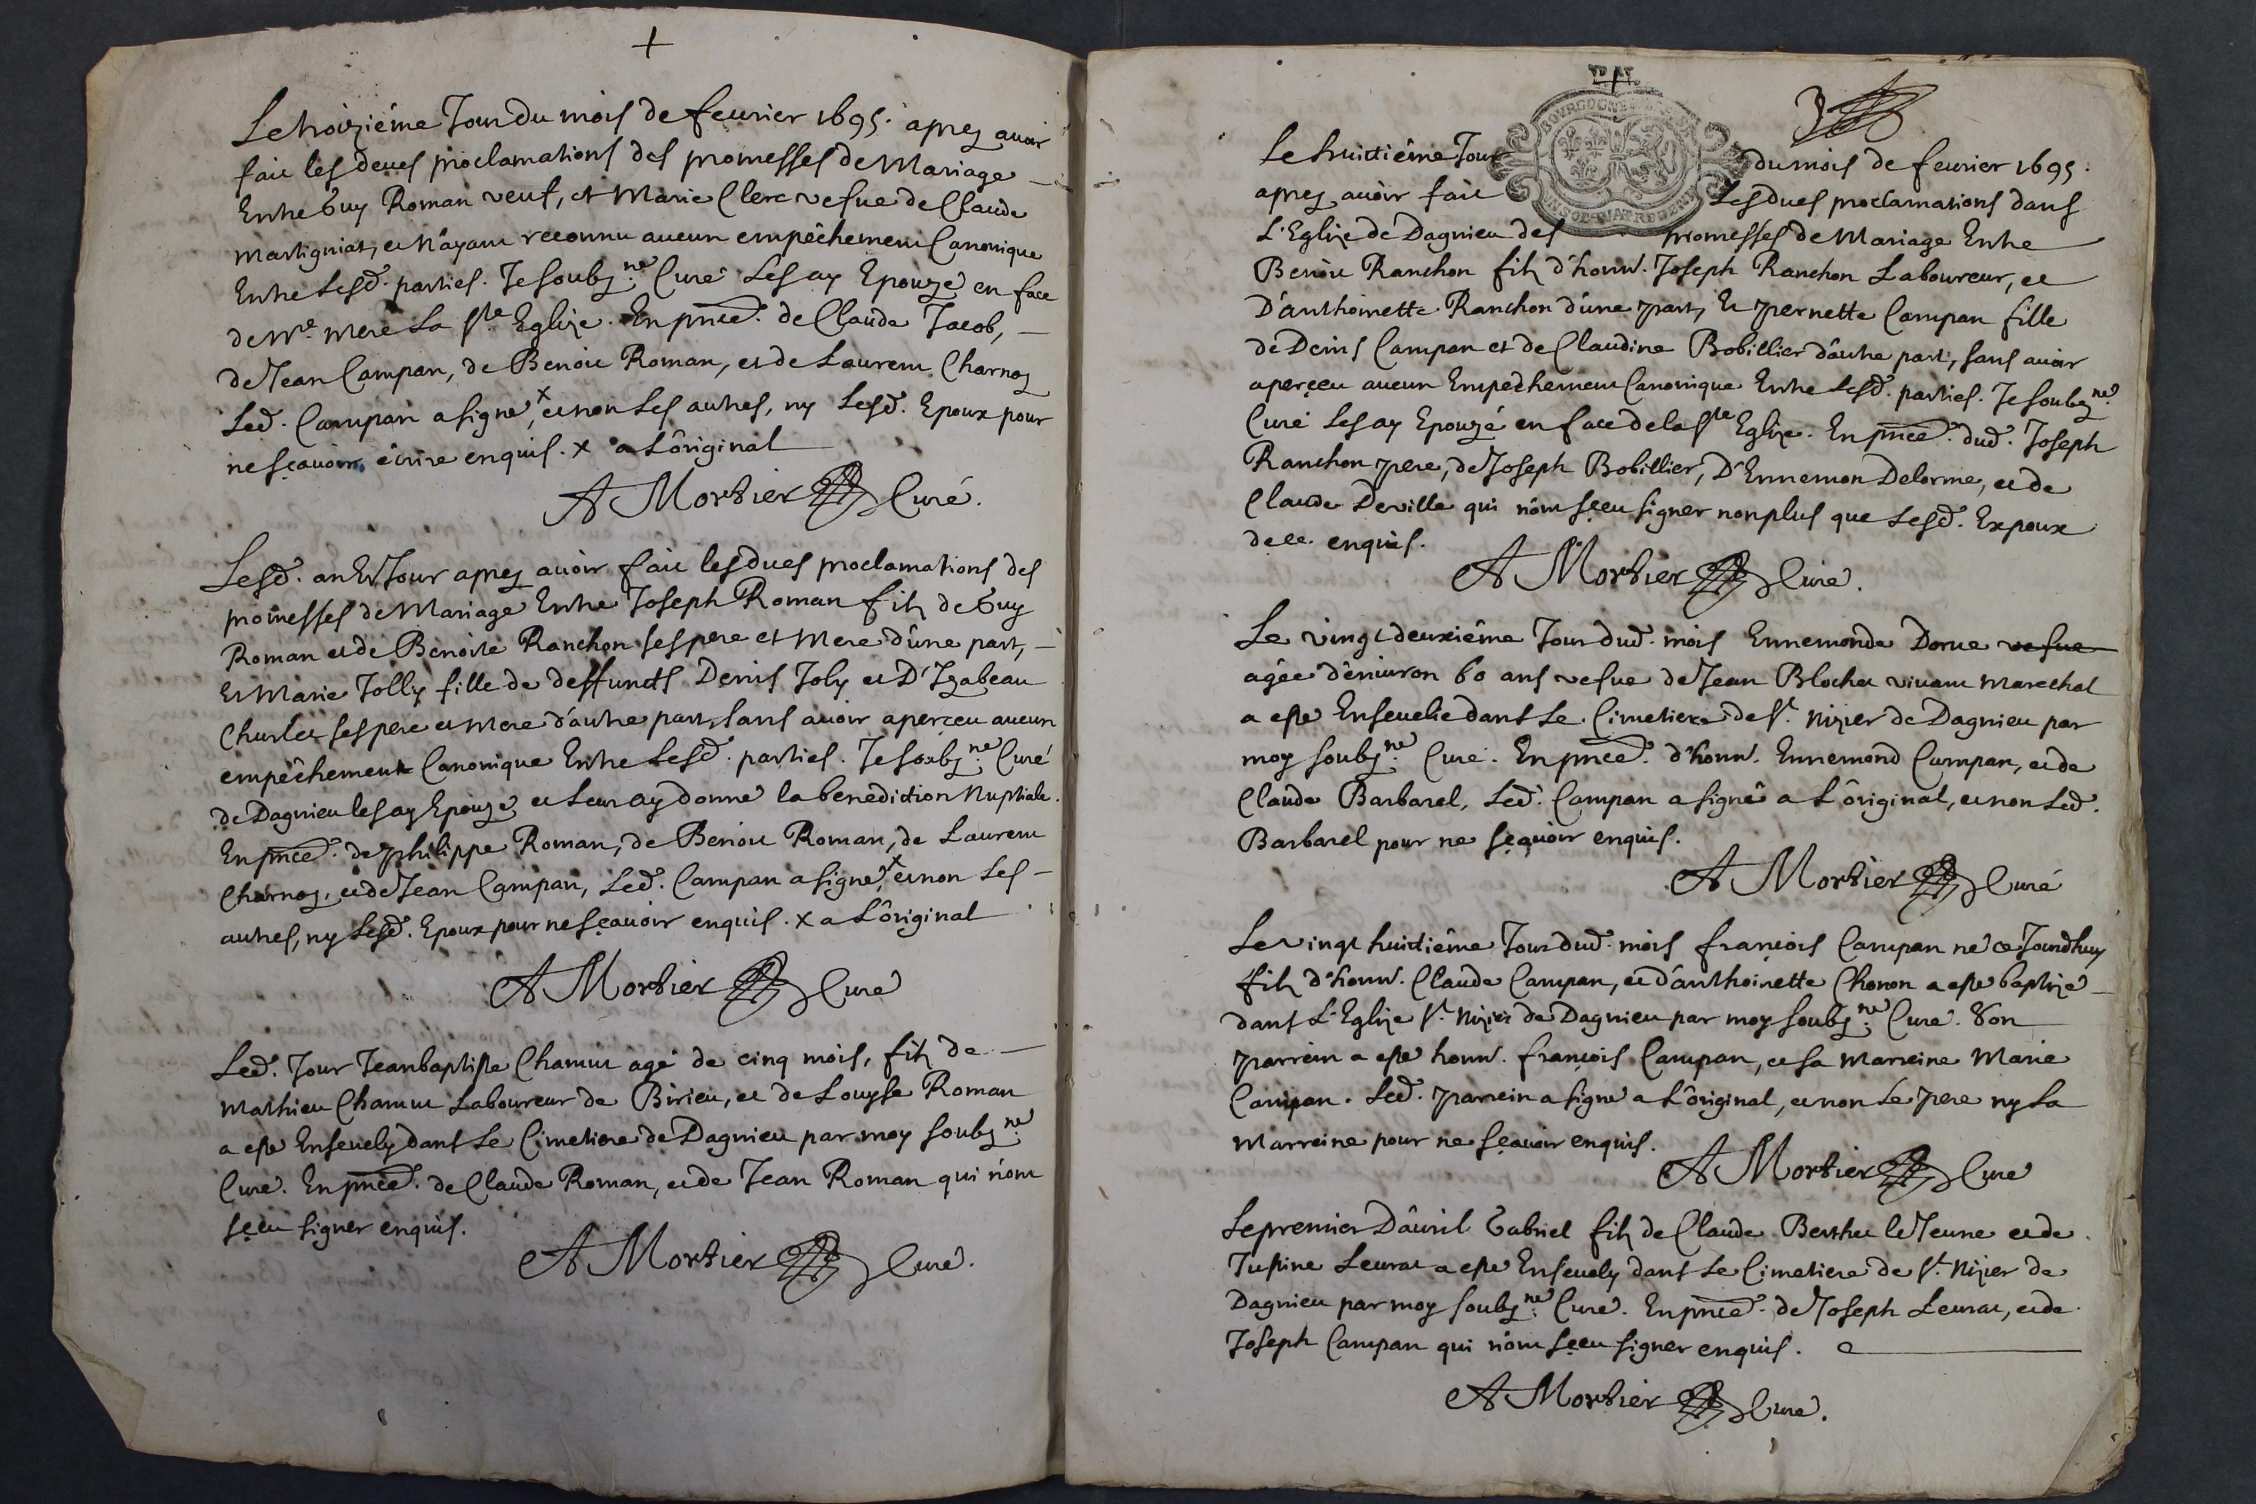 Le troizième Jour du mois de feurier 1695. aprez auoir
fait les deues proclamations des promesses de Mariage
Entre Guy Roman veuf, et Marie Clerc vefue de Claude
Martigniat, et n'ayant reconnu aucun empêchement Canonique
Entre Lesd. parties. Je soubz.né Curé Les ay Epouzé en face
de N.e mere La S.te Eglize. En pnce. de Claude Jacob,
de Jean Campan, de Benoit Roman, et de Laurent Charnoz
Led. Campan a signé, x et non Les autres, ny Lesd. Epoux pour
ne sçauoir écrire enquis. x a L'original
A Mortier Curé.
Lesd. an Et Jour aprez auoir fait les dues proclamations des
promesses de Mariage Entre Joseph Roman filz de Guy
Roman et de Benoite Ranchon ses pere et Mere d'une part,
Et Marie Jolly fille de deffuncts Denis Joly et D'Izabeau
Charlet ses pere et Mere d'autre part, sans auoir aperçeu aucun
empêchement Canonique Entre Lesd. parties. Je soubz.né Curé
de Dagnieu les ay Epouzé et Leur ay donné la benediction Nuptiale.
En pnce. de philippe Roman, de Benoit Roman, de Laurent
Charnoz, et de Jean Campan, Led. Campan a signé, x et non Les
autres, ny Lesd. Epoux pour ne sçauoir enquis. x a L'original
A Mortier Curé
Led. Jour Jean baptiste Chamut agé de cinq mois, filz de
Mathieu Chamut Laboureur de Birieu, et de Louyse Roman
a esté Enseuely dans Le Cimetiere de Dagnieu par moy soubz.né
Curé. En pnce. de Claude Roman, et de Jean Roman qui n'ont
sçeu signer enquis.
A Mortier Curé.
3
Le huictième Jour du mois de feurier 1695.
aprez auoir fait Les dues proclamations dans
L'Eglize de Dagnieu des promesses de Mariage Entre
Benoit Ranchon filz d'honn. Joseph Ranchon Laboureur, et
D'anthoinette Ranchon d'une part, Et pernette Campan fille
de Denis Campan et de Claudine Bobillier d'autre part, sans auoir
aperçeu aucun Empêchement Canonique Entre Lesd. parties. Je soubz.né
Curé Les ay Epouzé en face de la S.te Eglize. En pnce. dud. Joseph
Ranchon pere, de Joseph Bobillier, D'Ennemon Delorme, et de
Claude Deville qui n'ont sçeu signer non plus que Lesd. Expoux
de ce enquis.
A Mortier Curé.
Le vingt deuxième Jour dud. mois Ennemonde Dorue vefue
agée d'enuiron 60 ans vefue de Jean Blochet viuant Marechal
a esté Enseuelie dans Le Cimetiere de S.t Nizier de Dagnieu par
moy soubz.né Curé. En pnce. d'honn. Ennemond Campan, et de
Claude Barbarel, Led. Campan a signé a L'original, et non Led.
Barbarel pour ne sçauoir enquis.
A Mortier Curé
Le vingt huictième Jour dud. mois françois Campan né ce Jourdhuy
filz d'honn. Claude Campan, et d'anthoinette Chonon a esté baptizé
dans L'Eglize S.t Nizier de Dagnieu par moy soubz.né Curé. Son
parrein a esté honn. françois Campan, et sa Marreine Marie
Campan. Led. parrein a signé a L'original, et non Le pere ny La
Marreine pour ne sçauoir enquis.
A Mortier Curé
Le premier D'auril Gabriel filz de Claude Berthet le Jeune et de
Justine Leurat a esté Enseuely dans Le Cimetiere de S.t Nizier de
Dagnieu par moy soubz.né Curé. En pnce. de Joseph Leurat, et de
Joseph Campan qui n'ont sçeu signer enquis.
A Mortier Curé.